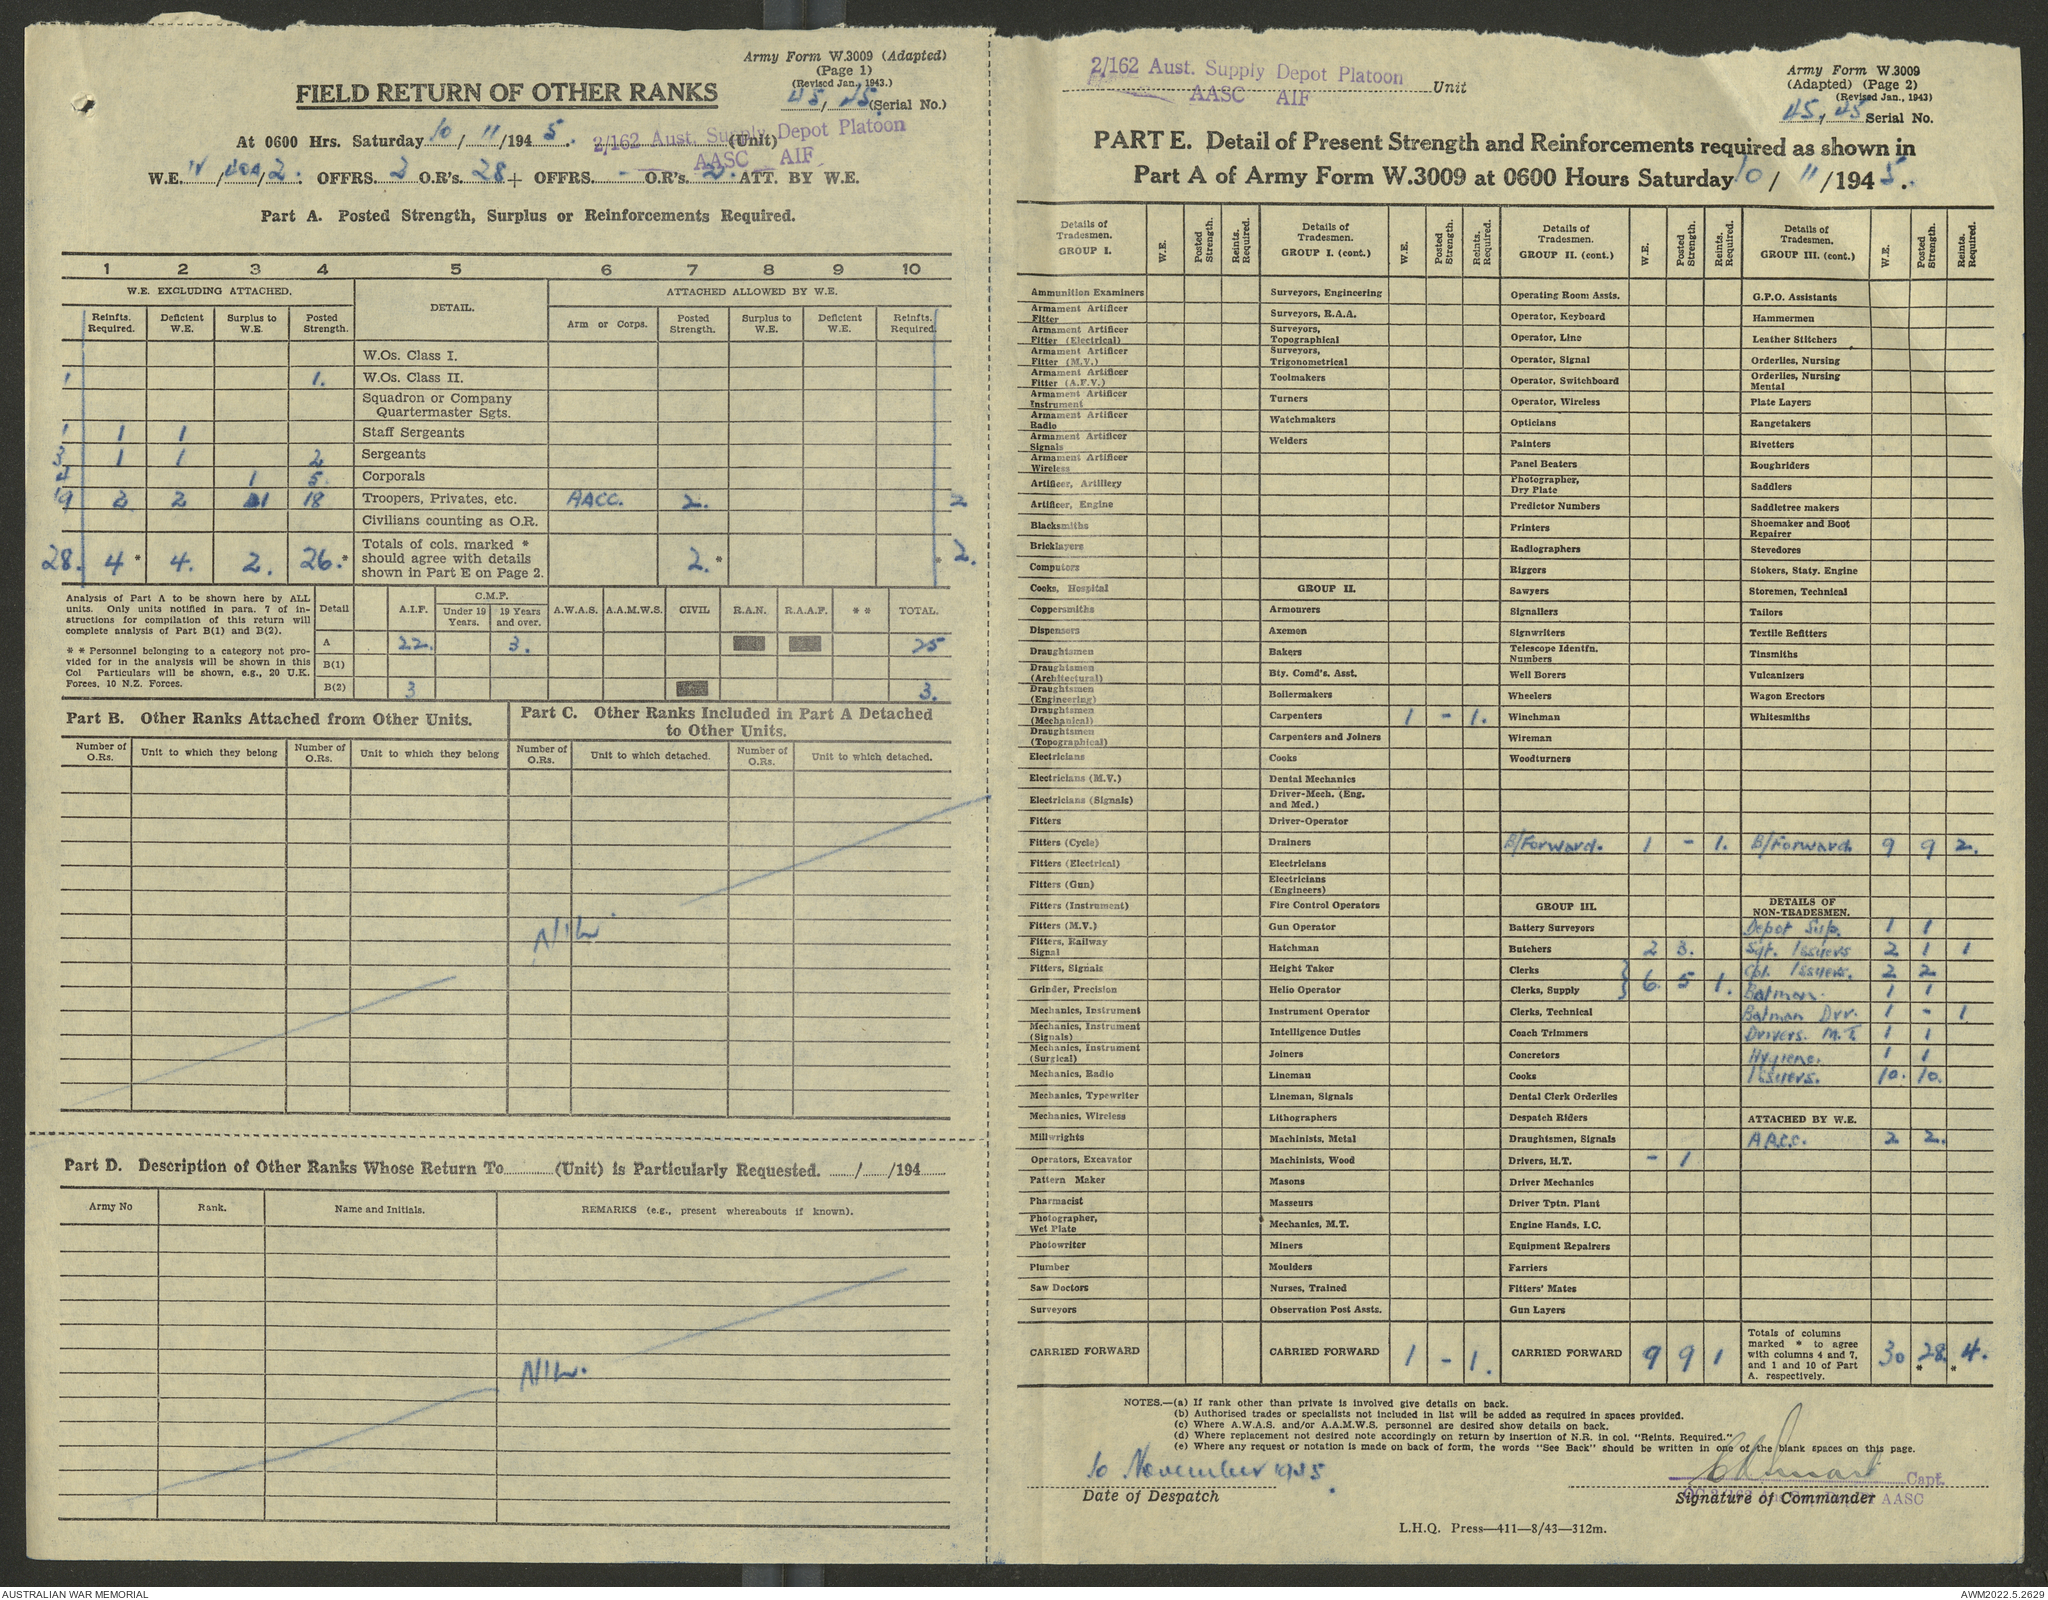 Army Form W.3009 (Adapted)
(Page 1)
(Revised Jan., 1943.)
FIELD RETURN OF OTHER RANKS
45, 45 (Serial No.)
At 0600 Hrs. Saturday 10/11/1945. 2/162 Aust. Supply Depot Platoon (Unit)
AASC AIF
W.E. IV / / 2. OFFRS. 2 O.R's. 28 + OFFRS. - O.R's. 2. ATT. BY W.E.
Part A. Posted Strength, Surplus or Reinforcements Required.
1 2 3 4 5 6 7 8 9 10
W.E. EXCLUDING ATTACHED. DETAIL. ATTACHED ALLOWED BY W.E.
Reinfts. Required. Deficient W.E. Surplus to W.E. Posted Strength. Arm or Corps. Posted Strength. Surplus to W.E. Deficient W.E. Reinfts. Required.
W.Os. Class I.
1 1. W.Os. Class II.
Squadron or Company Quartermaster Sgts.
1 1 1 Staff Sergeants
3 1 1 2 Sergeants
4 1 5. Corporals
19 2 2 1 18 Troopers, Privates, etc. AACC. 2. 2
Civilians counting as O.R.
28. 4 * 4. 2. 26. * Totals of cols. marked * should agree with details shown in Part E on Page 2. 2. * * 2.
Analysis of Part A to be shown here by ALL units. Only units notified in para. 7 of instructions for compilation of this return will complete analysis of Part B(1) and B(2).
* * Personnel belonging to a category not provided for in the analysis will be shown in this Col Particulars will be shown, e.g., 20 U.K. Forces, 10 N.Z. Forces.
Detail A.I.F. C.M.F. Under 19 Years. 19 Years and over. A.W.A.S. A.A.M.W.S. CIVIL R.A.N. R.A.A.F. * * TOTAL.
A 22. 3. 25
B(1)
B(2) 3 3.
Part B. Other Ranks Attached from Other Units.
Part C. Other Ranks Included in Part A Detached to Other Units.
Number of O.Rs. Unit to which they belong Number of O.Rs. Unit to which they belong Number of O.Rs. Unit to which detached. Number of O.Rs. Unit to which detached.
NIL
Part D. Description of Other Ranks Whose Return To (Unit) is Particularly Requested. / /194
Army No Rank. Name and Initials. REMARKS (e.g., present whereabouts if known).
NIL.
2/162 Aust. Supply Depot Platoon Unit
AASC AIF
Army Form W.3009
(Adapted) (Page 2)
(Revised Jan., 1943)
45, 45 Serial No.
PART E. Detail of Present Strength and Reinforcements required as shown in
Part A of Army Form W.3009 at 0600 Hours Saturday 10/11/1945.
Details of Tradesmen. GROUP I. W.E. Posted Strength. Reints. Required.
Ammunition Examiners
Armament Artificer Fitter
Armament Artificer Fitter (Electrical)
Armament Artificer Fitter (M.V.)
Armament Artificer Fitter (A.F.V.)
Armament Artificer Instrument
Armament Artificer Radio
Armament Artificer Signals
Armament Artificer Wireless
Artificer, Artillery
Artificer, Engine
Blacksmiths
Bricklayers
Computors
Cooks, Hospital
Coppersmiths
Dispensers
Draughtsmen
Draughtsmen (Architectural)
Draughtsmen (Engineering)
Draughtsmen (Mechanical)
Draughtsmen (Topographical)
Electricians
Electricians (M.V.)
Electricians (Signals)
Fitters
Fitters (Cycle)
Fitters (Electrical)
Fitters (Gun)
Fitters (Instrument)
Fitters (M.V.)
Fitters, Railway Signal
Fitters, Signals
Grinder, Precision
Mechanics, Instrument
Mechanics, Instrument (Signals)
Mechanics, Instrument (Surgical)
Mechanics, Radio
Mechanics, Typewriter
Mechanics, Wireless
Millwrights
Operators, Excavator
Pattern Maker
Pharmacist
Photographer, Wet Plate
Photowriter
Plumber
Saw Doctors
Surveyors
CARRIED FORWARD
Details of Tradesmen. GROUP I. (cont.) W.E. Posted Strength. Reints. Required.
Surveyors, Engineering
Surveyors, R.A.A.
Surveyors, Topographical
Surveyors, Trigonometrical
Toolmakers
Turners
Watchmakers
Welders
GROUP II.
Armourers
Axemen
Bakers
Bty. Comd's. Asst.
Boilermakers
Carpenters 1 - 1.
Carpenters and Joiners
Cooks
Dental Mechanics
Driver-Mech. (Eng. and Med.)
Driver-Operator
Drainers
Electricians
Electricians (Engineers)
Fire Control Operators
Gun Operator
Hatchman
Height Taker
Helio Operator
Instrument Operator
Intelligence Duties
Joiners
Lineman
Lineman, Signals
Lithographers
Machinists, Metal
Machinists, Wood
Masons
Masseurs
Mechanics, M.T.
Miners
Moulders
Nurses, Trained
Observation Post Assts.
CARRIED FORWARD 1 - 1.
Details of Tradesmen. GROUP II. (cont.) W.E. Posted Strength. Reints. Required.
Operating Room Assts.
Operator, Keyboard
Operator, Line
Operator, Signal
Operator, Switchboard
Operator, Wireless
Opticians
Painters
Panel Beaters
Photographer, Dry Plate
Predictor Numbers
Printers
Radiographers
Riggers
Sawyers
Signallers
Signwriters
Telescope Identfn. Numbers
Well Borers
Wheelers
Winchman
Wireman
Woodturners
B/Forward. 1 - 1.
GROUP III.
Battery Surveyors
Butchers 2 3.
Clerks
Clerks, Supply } 6. 5 1.
Clerks, Technical
Coach Trimmers
Concretors
Cooks
Dental Clerk Orderlies
Despatch Riders
Draughtsmen, Signals
Drivers, H.T. - 1
Driver Mechanics
Driver Tptn. Plant
Engine Hands, I.C.
Equipment Repairers
Farriers
Fitters' Mates
Gun Layers
CARRIED FORWARD 9 9 1
Details of Tradesmen. GROUP III. (cont.) W.E. Posted Strength. Reints. Required.
G.P.O. Assistants
Hammermen
Leather Stitchers
Orderlies, Nursing
Orderlies, Nursing Mental
Plate Layers
Rangetakers
Rivetters
Roughriders
Saddlers
Saddletree makers
Shoemaker and Boot Repairer
Stevedores
Stokers, Staty. Engine
Storemen, Technical
Tailors
Textile Refitters
Tinsmiths
Vulcanizers
Wagon Erectors
Whitesmiths
B/Forward 9 9 2.
DETAILS OF NON-TRADESMEN.
Depot Sup. 1 1
Sgt. Issuers 2 1 1
Cpl. Issuers. 2 2
Batman. 1 1
Batman Dvr. 1 - 1
Drivers. M.T. 1 1
Hygiene. 1 1
Issuers. 10. 10.
ATTACHED BY W.E.
AACC. 2 2.
Totals of columns marked * to agree with columns 4 and 7, and 1 and 10 of Part A. respectively. 30 28. * 4. *
NOTES.—(a) If rank other than private is involved give details on back.
(b) Authorised trades or specialists not included in list will be added as required in spaces provided.
(c) Where A.W.A.S. and/or A.A.M.W.S. personnel are desired show details on back.
(d) Where replacement not desired note accordingly on return by insertion of N.R. in col. "Reints. Required."
(e) Where any request or notation is made on back of form, the words "See Back" should be written in one of the blank spaces on this page.
10 November 1945.
Date of Despatch
Capt.
AASC
Signature of Commander
L.H.Q. Press—411—8/43—312m.
AUSTRALIAN WAR MEMORIAL
AWM2022.5.2629